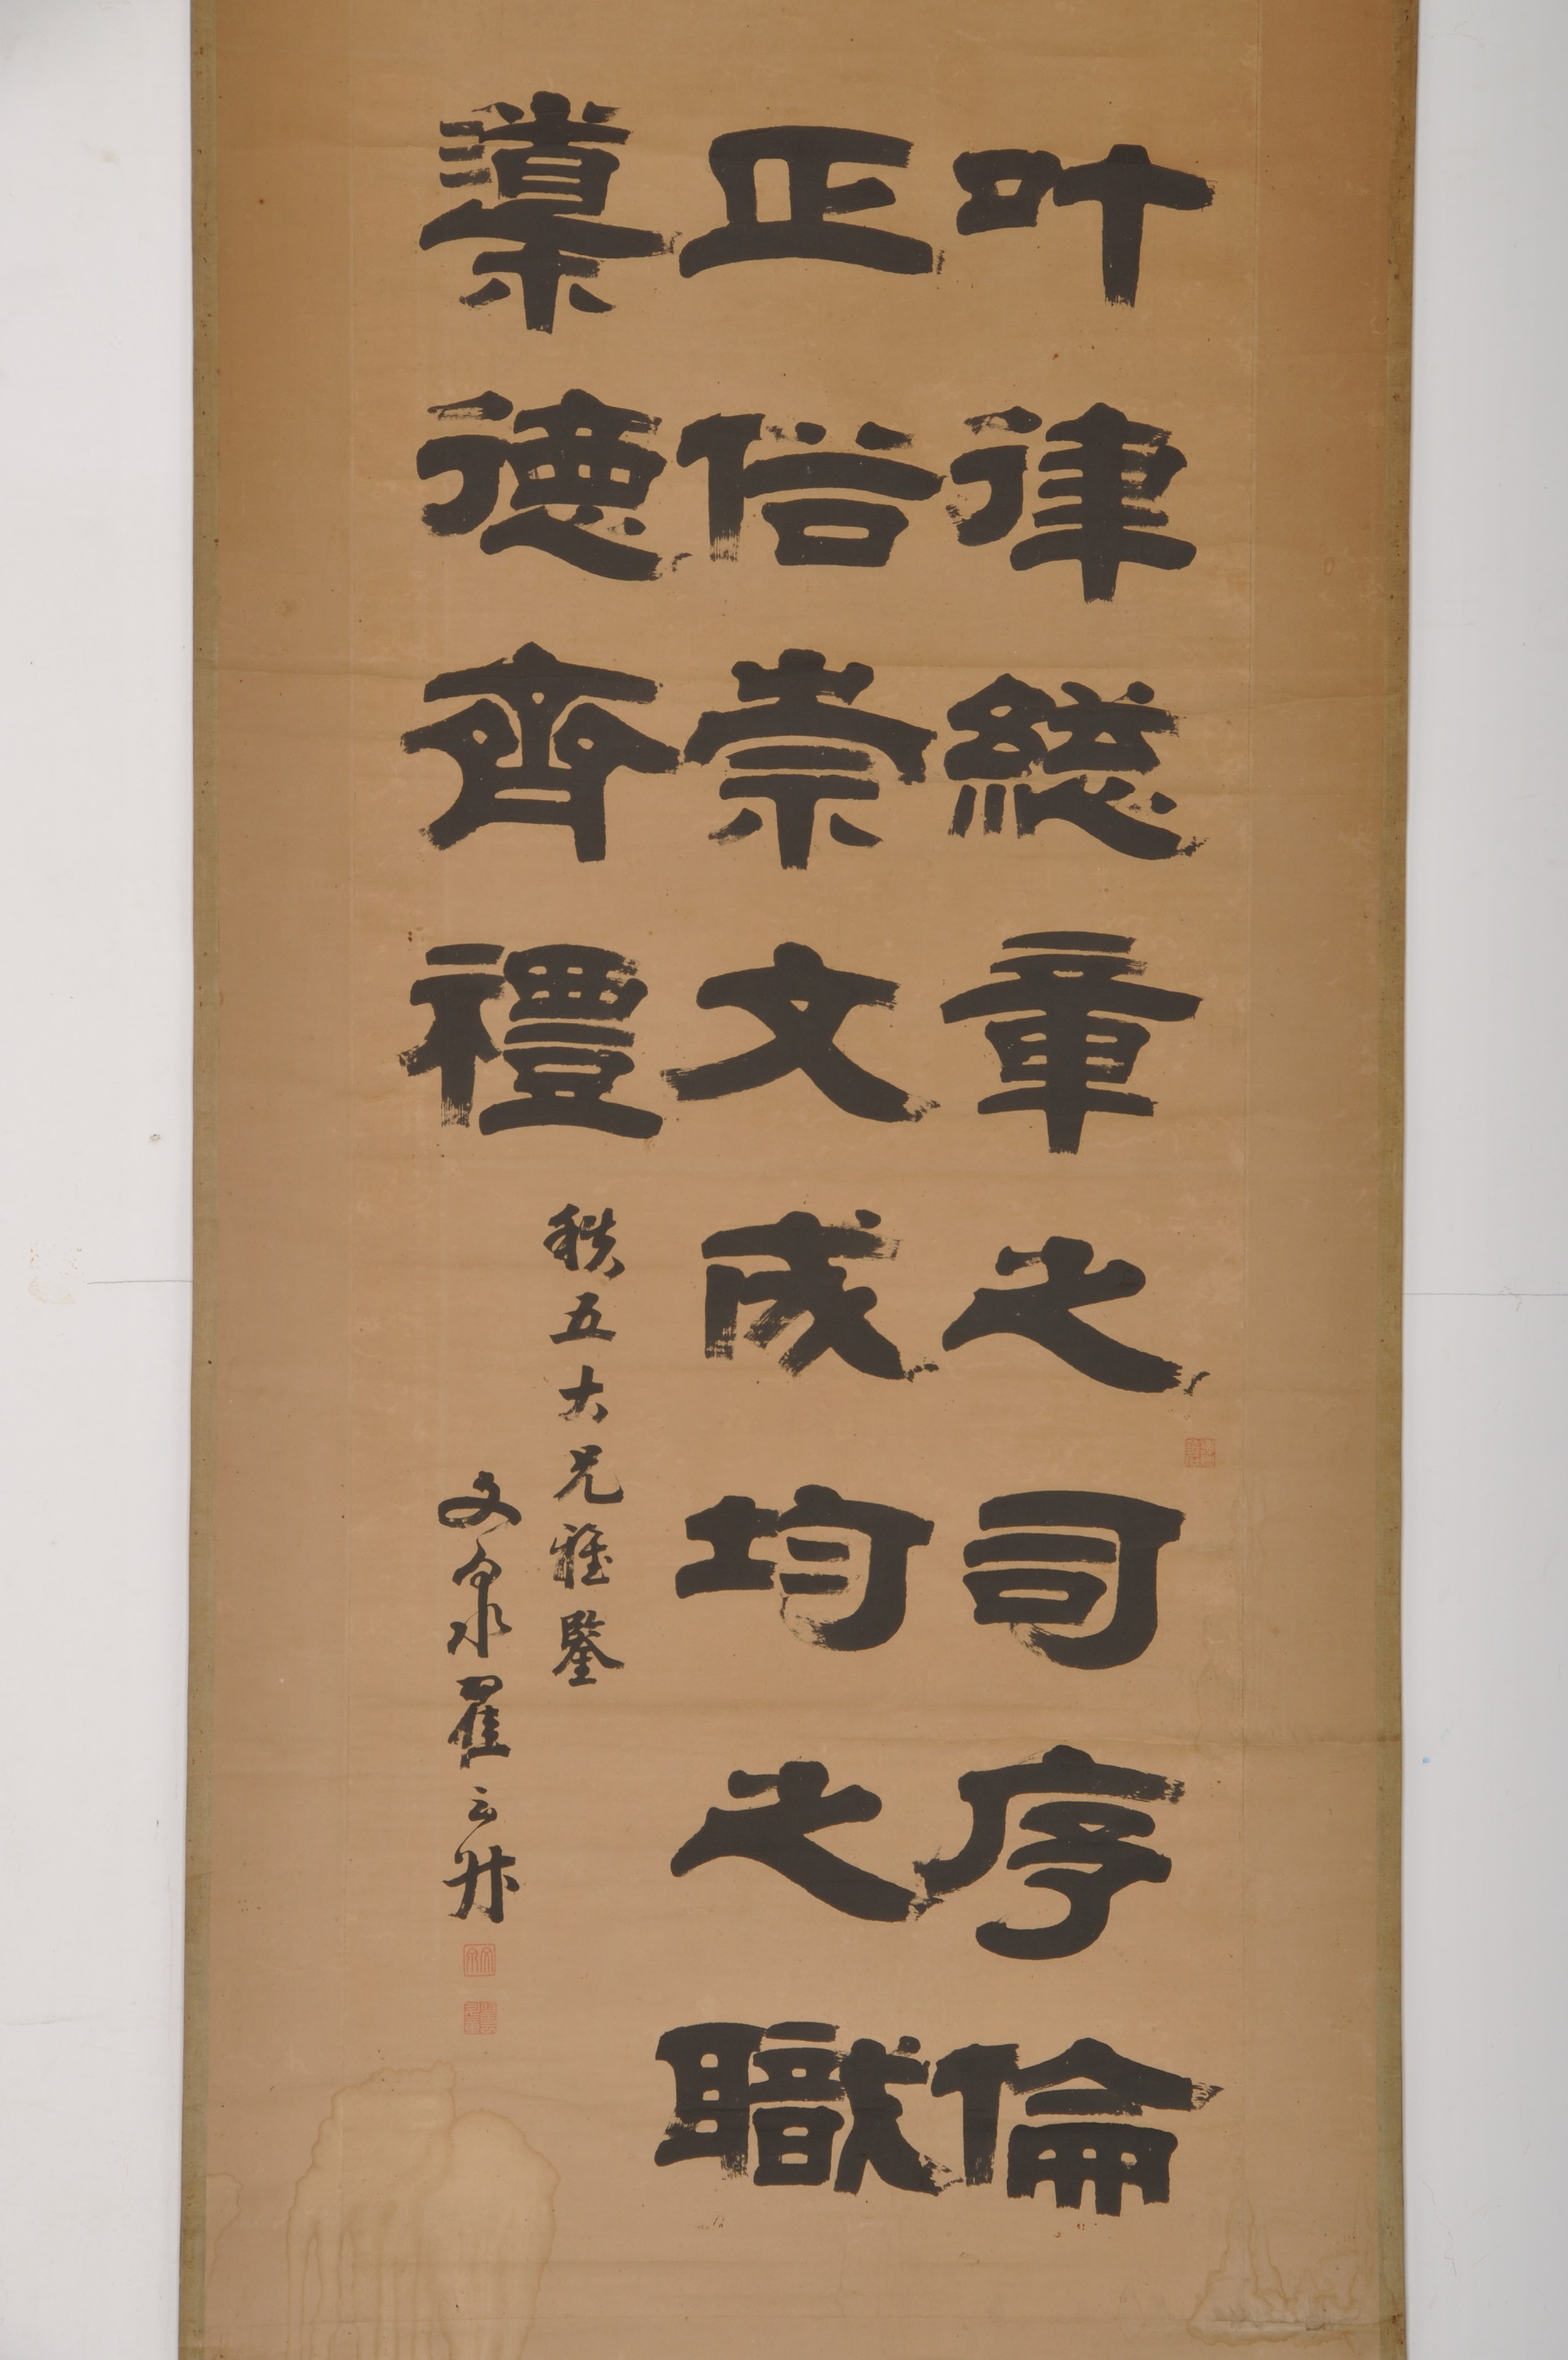 叶律總章之司序倫
正俗崇文成均之職
導德齊禮
秩五大兄雅鑒
文泉翟云升